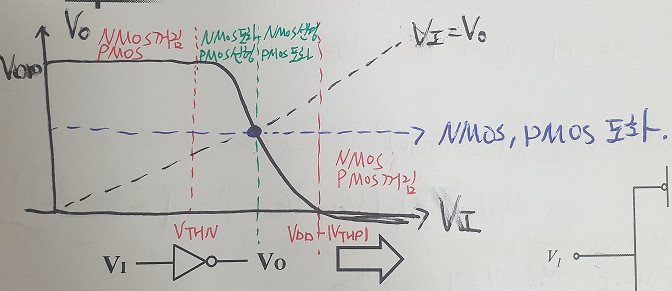 Vo
NMOS꺼짐
PMOS
NMOS포화
PMOS선형
NMOS선형
PMOS포화
VI=Vo
VDD
NMOS, PMOS 포화.
NMOS
PMOS꺼짐
VTHN
VDD-|VTHP|
VI
VI
VO
VI